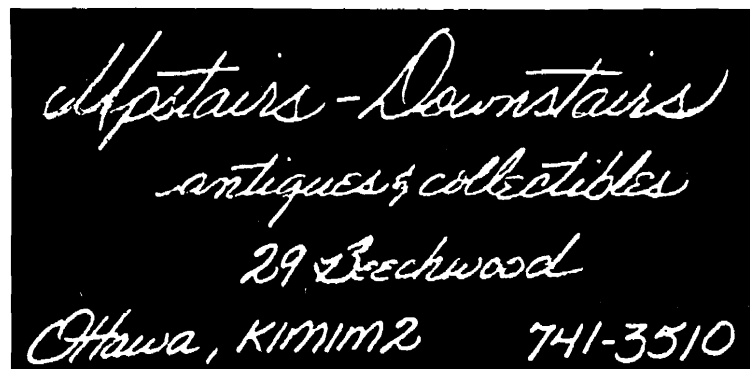 Upstairs - Downstairs
antiques & collectibles
29 Beechwood
Ottawa, K1M1M2 741-3510